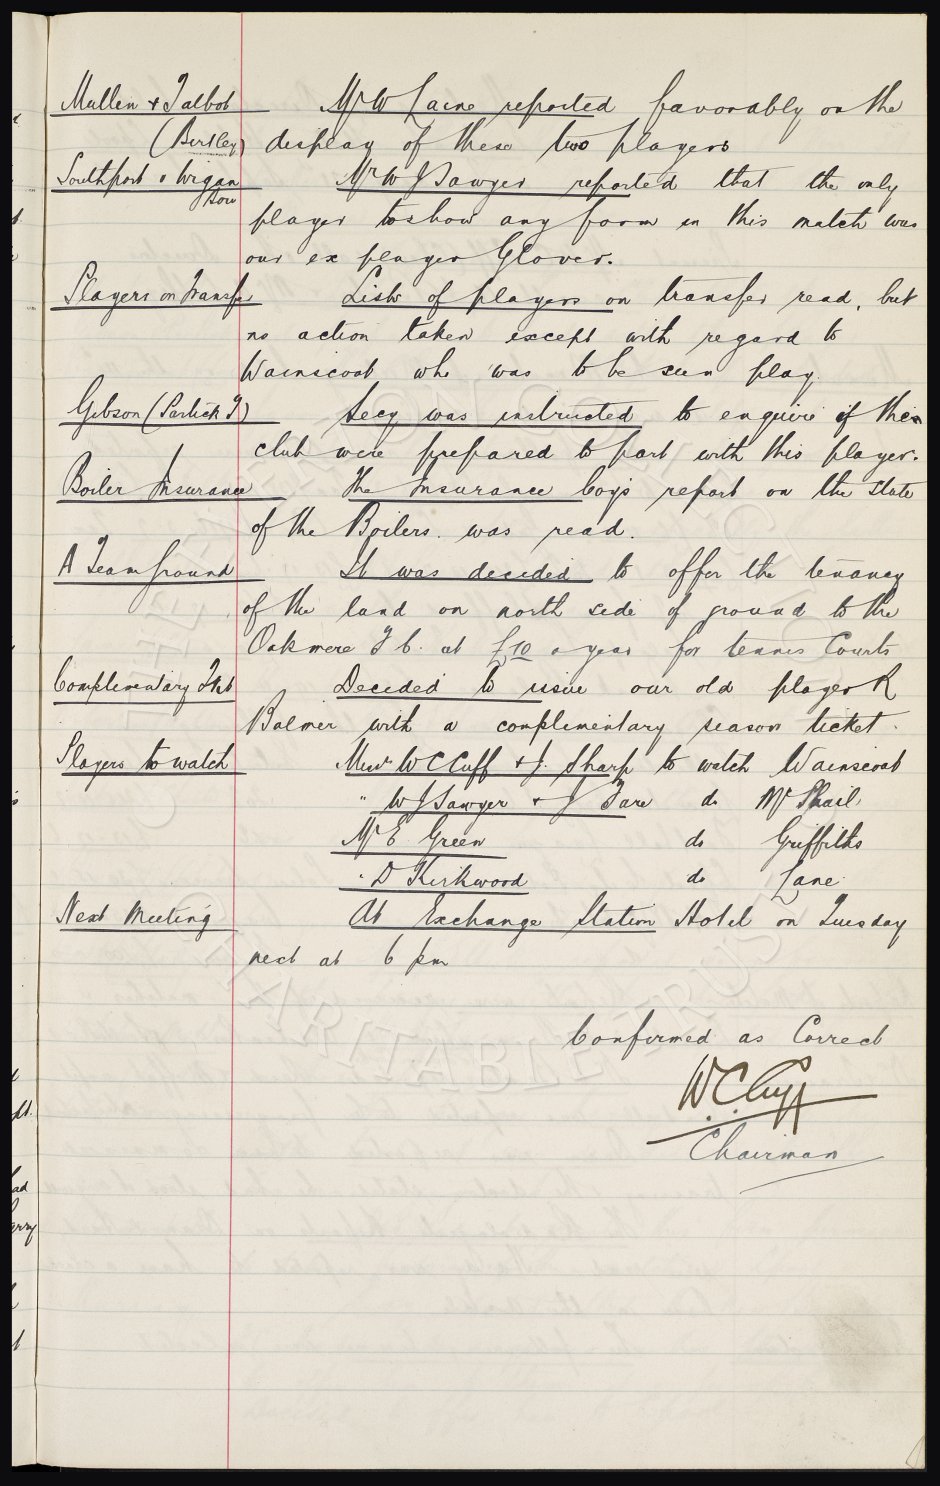 Mullen & Talbot Mr W Caine reported favorably on the
(Bertley) display of these two players
Southport v Wigan Mr W J Sawyer reported that the only
Boro player to show any form in this match was
our ex player Glover.
Players on Transfer Lists of players on transfer read, but
no action taken except with regard to
Wainscoat who was to be seen play.
Gibson (Partick T) Secy was instructed to enquire if their
club were prepared to part with this player.
Boiler Insurance The Insurance Coy's report on the state
of the Boilers was read.
A Team Ground It was decided to offer the tenancy
of the land on north side of ground to the
Oakmere T C. at £10 a year for tennis Courts
Complimentary Tkt Decided to issue our old player R
Balmer with a complimentary season ticket.
Players to watch Messrs W C Cuff & J. Sharp to watch Wainscoat
" W J Sawyer & J Fare do McPhail
Mr E Green do Griffiths
" D Kirkwood do Lane
Next Meeting At Exchange Station Hotel on Tuesday
next at 6 pm
Confirmed as Correct
W. C. Cuff
Chairman
CHARITABLE TRUST